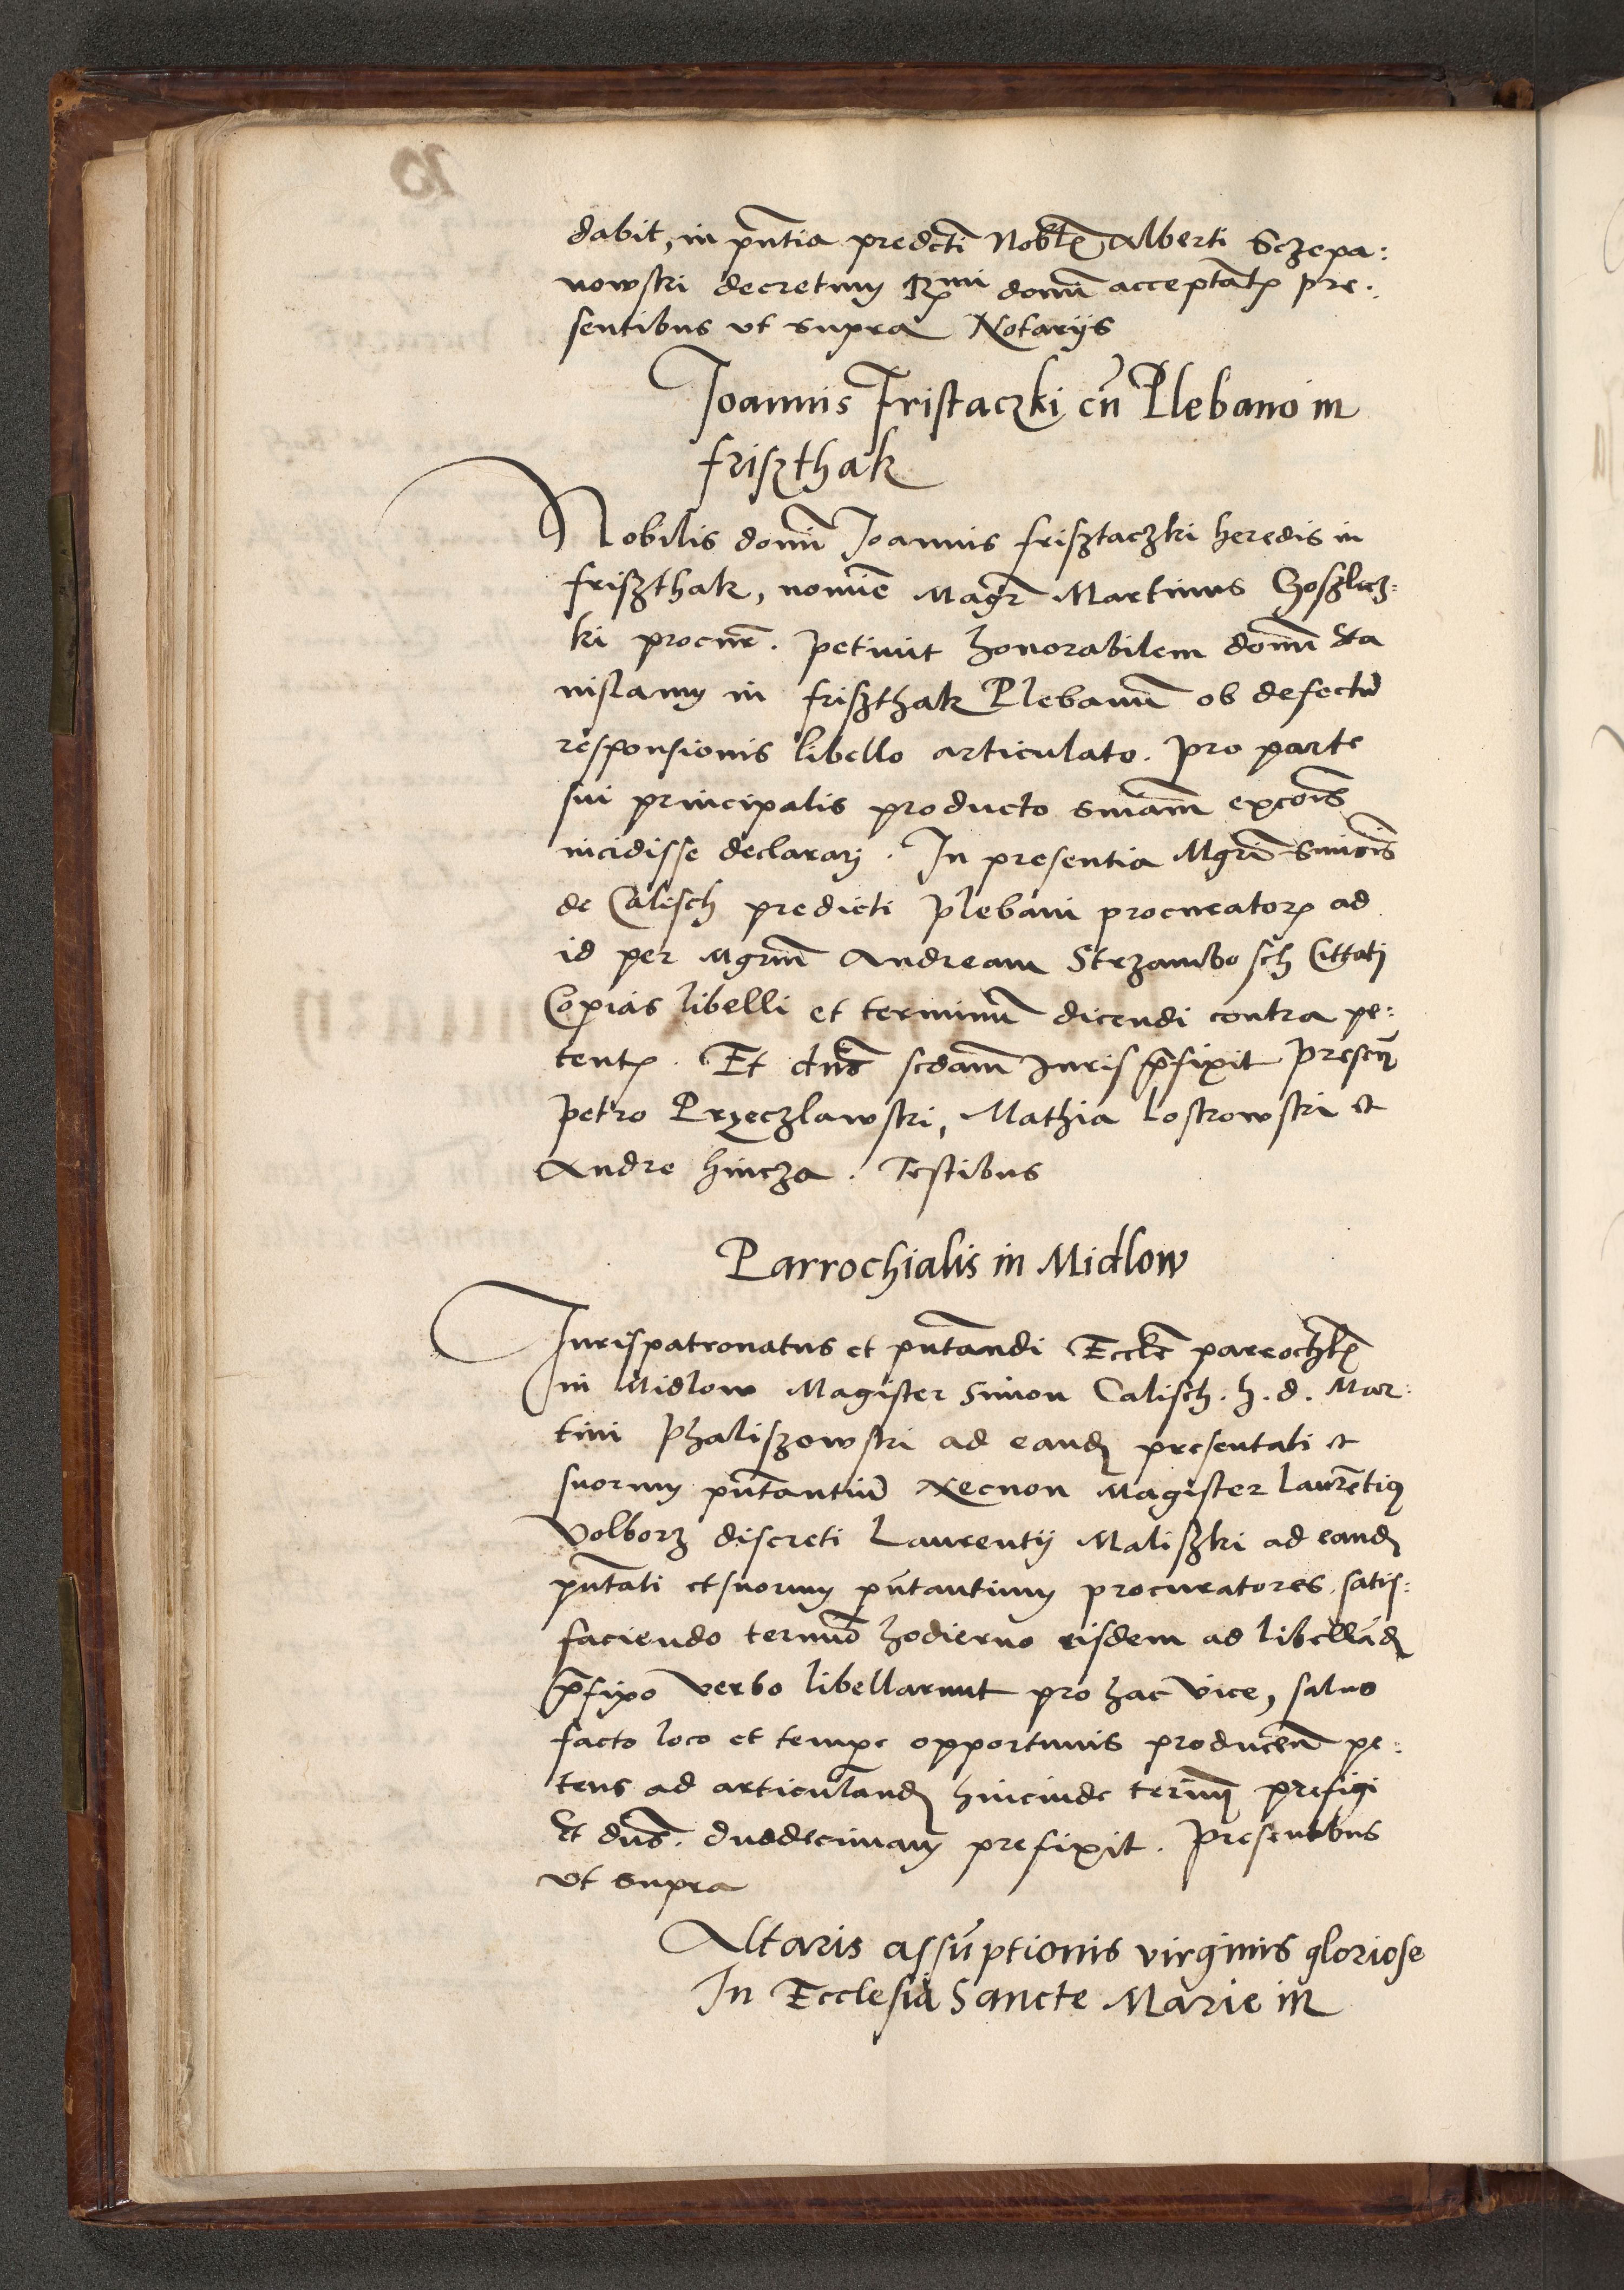 dabit, in pñtia predcti Nobłis Alberti Sczepa:
nowski decretum Rmi domi acceptatis pre:
sentibus vt supra Notarijs
Joannis Fristaczki cū Plebano in
friszthak
Nobilis domi Joannis frisztaczki heredis in
friszthak, nomie Magr Martinus Goszlicz:
ki procur. petiuit honorabilem domi Sta
nislaum in friszthak Plebanū ob defectū
responsionis libello articulato. pro parte
sui principalis producto sniam excois
incidisse declarari. In presentia Mgri Simois
de Calisch predicti plebani procuratoris ad
id per Mgrum Andream Strzambosch Cittati
Copias libelli et terminū dicendi contra pe:
tentis. Et dns scdam Juris pfixit presen
petro Przeczlawski, Mathia Lostowski et
Andre hincza. Testibus
Parrochialis in Midlow
Jurispatronatus et pñtandi Eccłe parrochłis
in Midlow Magister Simon Calisch. h. d. Mar:
tini Phaliszowski ad eand presentati et
suorum pñtantiū Necnon Magister laurētius
Volborz discreti Laurentij Maliszki ad eand
pñtati et suorum pñtantium procuratores satis:
faciendo termio hodierno eisdem ad libelland
pfixo verbo libellarunt pro hac vice, saluo
facto loco et tempe opportunis producen pe:
tens ad articuland hincinde termin prefigi
Et dns. duodecimam prefixit. presentibus
vt supra
Altaris assūptionis virginis gloriose
In Ecclesia Sancte Marie in